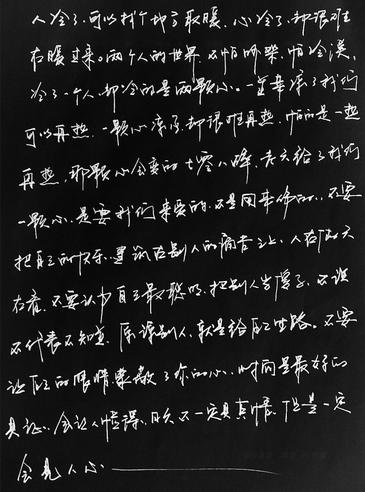 人冷了，可以找个地方取暖，心冷了，却很难
在暖过来。两个人的世界，不怕吵架，怕冷漠，
冷了一个人，却冷的是两颗心。一壶茶凉了我们
可以再热，一颗心凉了，却很难再热，怕的是一热
再热，那颗心会变的七零八碎，老天给了我们
一颗心，是要我们来爱的，不是用来伤的，不要
把自己的快乐，建筑在别人的痛苦之上，人在做天
在看，不要认为自己最聪明，把别人当傻子，不说
不代表不知道，原谅别人，就是给自己出路。不要
让自己的眼睛蒙敝了你的心，时间是最好的
见证，会让人懂得，日久不一定见真情，但是一定
会见人心